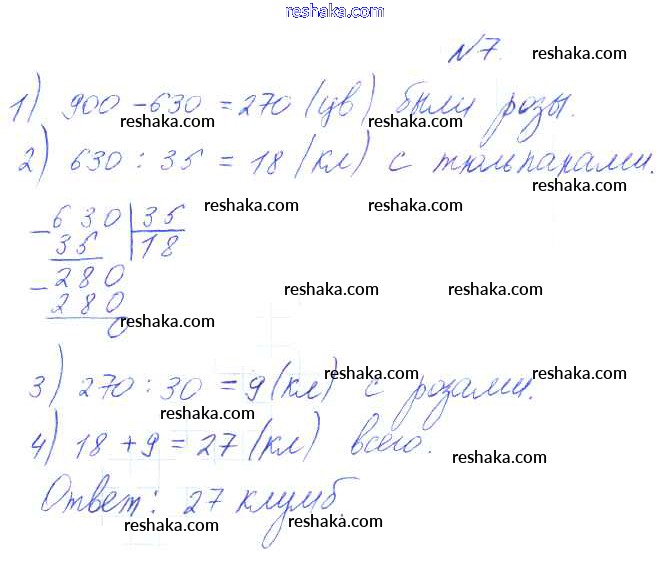 reshaka.com
№7. reshaka.com
1) 900 - 630 = 270 (цв) были розы.
reshaka.com reshaka.com
2) 630 : 35 = 18 (кл) с тюльпанами.
reshaka.com
reshaka.com reshaka.com
- 630 | 35
35 | 18
- 280
280
0
reshaka.com reshaka.com
reshaka.com reshaka.com
3) 270 : 30 = 9 (кл) с розами.
reshaka.com reshaka.com
reshaka.com reshaka.com
4) 18 + 9 = 27 (кл) всего.
reshaka.com
Ответ: 27 клумб.
reshaka.com reshaka.com